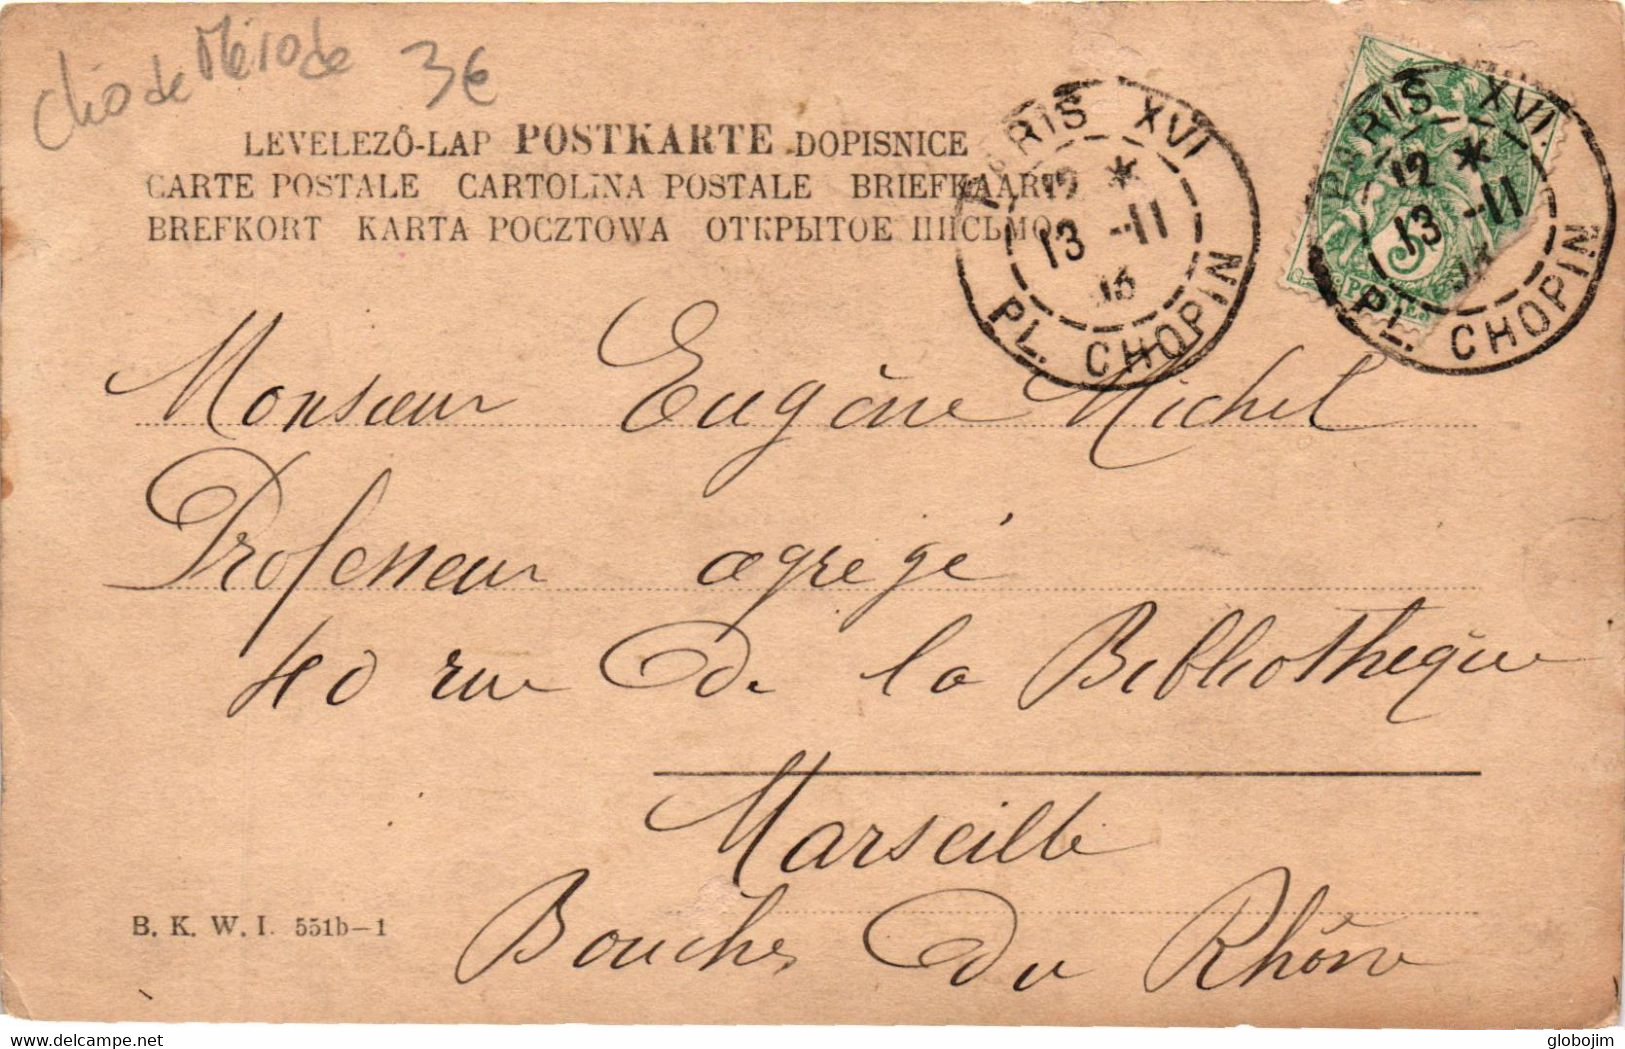 Cléo de Mérode 3€
LEVELEZŐ-LAP POSTKARTE DOPISNICE
CARTE POSTALE CARTOLINA POSTALE BRIEFKAART
BREFKORT KARTA POCZTOWA ОТКРЫТОЕ ПИСЬМО
PARIS XVI
12 *
13 -11
PL. CHOPIN
PARIS XVI.
12 *
13 -11
PL. CHOPIN
5
POSTES
Monsieur Eugène Michel
Professeur agrégé
40 rue de la Bibliothèque
Marseille
Bouches du Rhône
B. K. W. I. 551b-1
delcampe.net
globojim